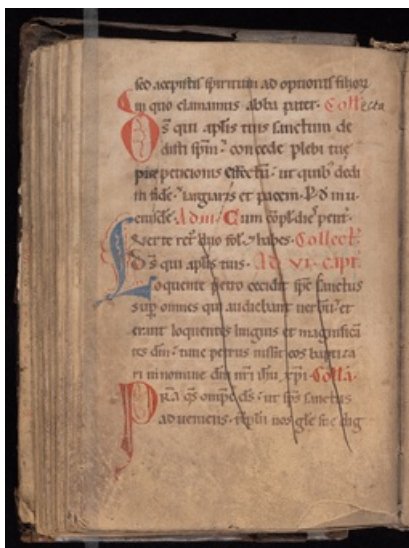 sed accepistis spiritum adoptionis filiorꝝ
in quo clamamus abba pater. Collecta
Os̄ qui apl̄is tuis sanctum de
disti sp̄m concede plebi tuę
pię peticionis effectū ut quib; dedi
fidē largiaris et pacem. P. d
Ad Cum
Collect.
Ds̄ qui apl̄is tuis. Ad VI. capt̄.
Loquente petro cecidit sp̄c sanctus
sup̄ omnes qui audiebant uerbū et
erant loquentes linguis et magnificā
tes dm̄. tunc petrus iussit eos baptiza
ri in nomine dn̄i nr̄i ihū xp̄i. Coll̄a.
om̄ps ds̄ ut sp̄s sanctus
adueniens. templū nos glę suę